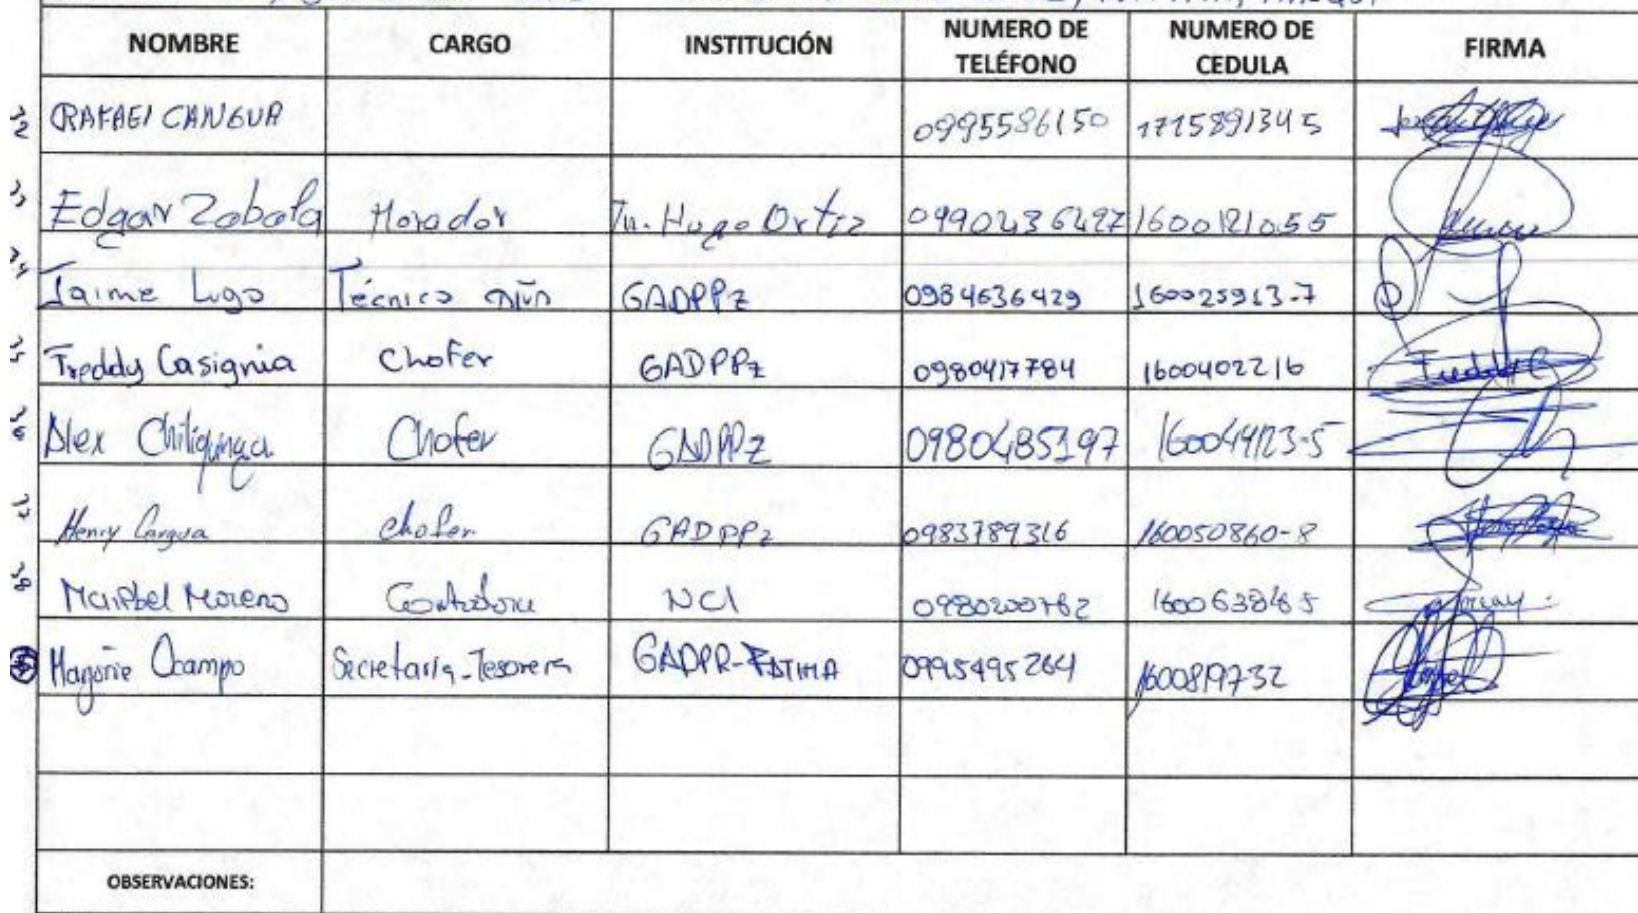 NOMBRE CARGO INSTITUCIÓN NUMERO DE TELÉFONO NUMERO DE CEDULA FIRMA
RAFAEl CANGUA 0995586150 1715891345
Edgar Zabala Morador Tn. Hugo Ortiz 0990236427 1600121055
Jaime Lugo Técnico GADPPz 0984636429 160025913-7
Freddy Casignia Chofer GADPPz 0980417784 1600402216
Alex Chiliquinga Chofer GADPPz 0980485197 160049123-5
Henry Cangua chofer GADPPz 0983789316 160050860-8
Maribel Moreno Contadora NCI 0980200762 1600638465
Marjorie Ocampo Secretaria-Tesorera GADPR-FATIMA 0995495264 1600819732
OBSERVACIONES: